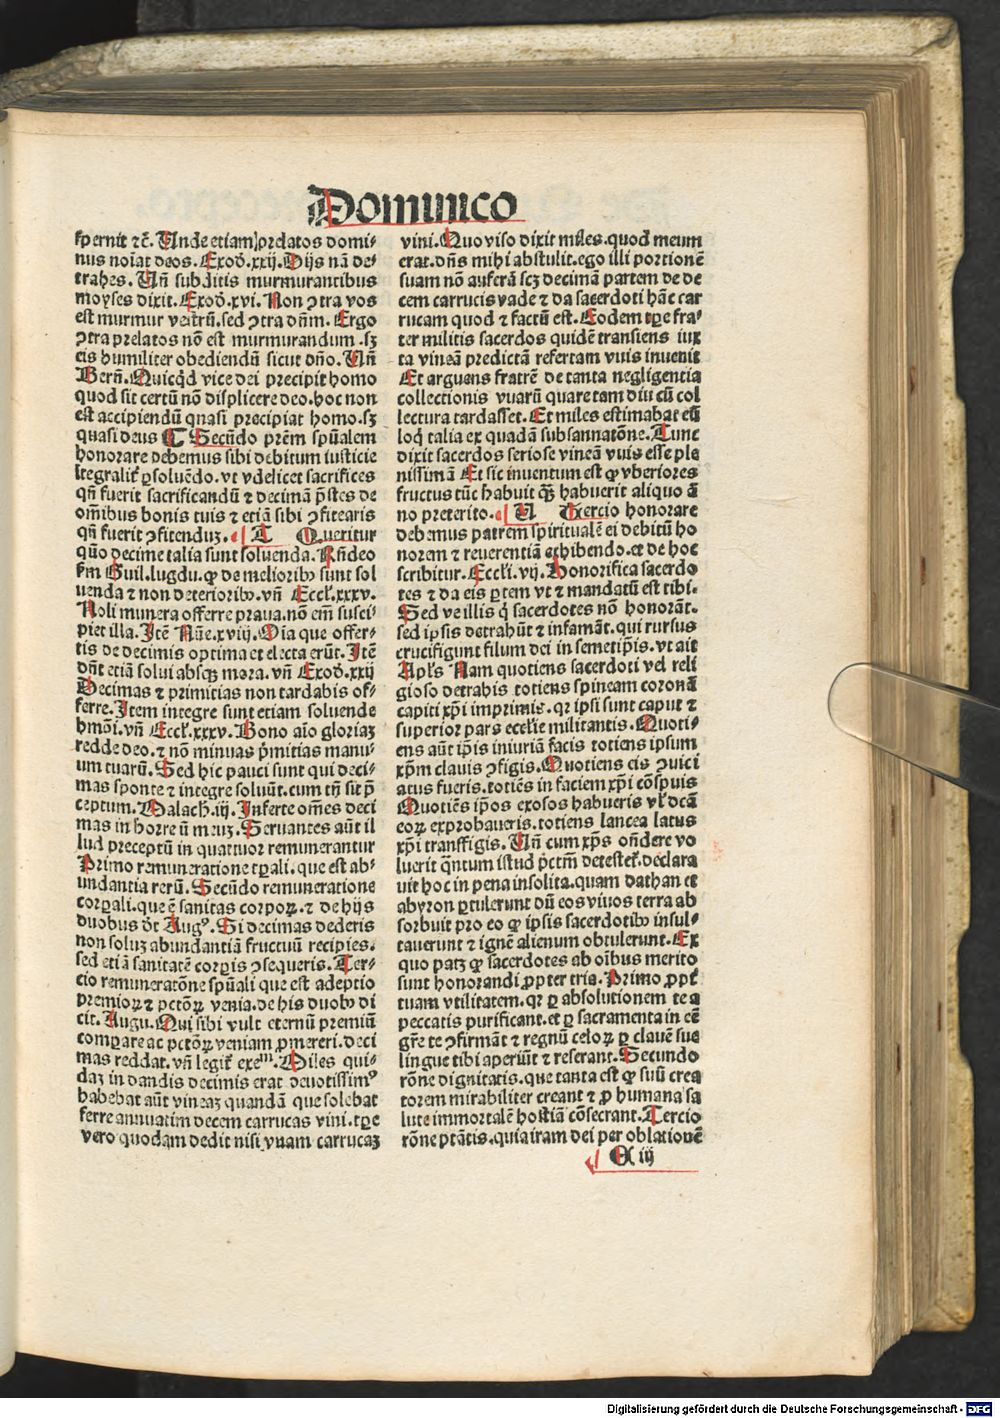 Dominico
spernit ⁊c̄. Unde etiam prelatos domi⸗
nus noīat deos. Exod̄. xxij. Dijs nā de⸗
trahes. Uñ subditis murmurantibus
moyses dixit. Exod̄. xvi. Non ꝯtra vos
est murmur vestrū. sed ꝯtra dñm. Ergo
ꝯtra prelatos nō est murmurandum. sꝫ
eis humiliter obediendū sicut dño. Uñ
Berñ. Quicq̇d vice dei precipit homo
quod sit certū nō displicere deo. hoc non
est accipiendū quasi precipiat homo. sꝫ
quasi deus ¶ Secūdo prēm spūalem
honorare debemus sibi debitum iusticie
ītegralit̃ ꝑsoluēdo. vt vdelicet sacrifices
qñ fuerit sacrificandū ⁊ decimā p̄stes de
om̄ibus bonis tuis ⁊ etiā sibi ꝯfitearis
qñ fuerit ꝯfitenduꝫ. T Queritur
quō decime talia sunt soluenda. Rñdeo
s̄m Guil. lugdu. ꝙ de meliorib⁹ sunt sol
uenda ⁊ non deteriorib⁹. vñ Eccł. xxxv.
Noli munera offerre praua. nō em̄ susci⸗
piet illa. Itē Nūe. xviij. Oīa que offer⸗
tis de decimis optima et electa erūt. Itē
dn̄t etiā solui absqꝫ mora. vñ Exod̄. xxij
Decimas ⁊ primitias non tardabis of⸗
ferre. Item integre sunt etiam soluende
hm̄oi. vñ Eccł. xxxv. Bono aīo gloriaꝫ
redde deo. ⁊ nō minuas p̄mitias manu⸗
um tuarū. Sed hic pauci sunt qui deci⸗
mas sponte ⁊ integre soluūt. cum tñ sit p̄
ceptum. Malach. iij. Inferte om̄es deci
mas in horreū meuꝫ. Seruantes aūt il
lud preceptū in quatuor remunerantur
Primo remuneratione tꝑali. que est ab⸗
undantia rerū. Secūdo remuneratione
corꝑali. que ē sanitas corpoꝝ. ⁊ de hijs
duobus dt̄ Aug⁹. Si decimas dederis
non soluꝫ abundantiā fructuū recipies.
sed etiā sanitatē corꝑis ꝯsequeris. Ter⸗
cio remuneratōne spūali que est adeptio
premioꝝ ⁊ pctōꝝ venia. de his duob⁹ di
cit. Augu. Qui sibi vult eternū premiū
comꝑare ac pctōꝝ veniam ꝓmereri. deci
mas reddat. vñ legit̃ exeᵐ. Miles qui⸗
daꝫ in dandis decimis erat deuotissim⁹
habebat aūt vineaꝫ quandā que solebat
ferre annuatim decem carrucas vini. tꝑe
vero quodam dedit nisi vnam carrucaꝫ
vini. Quo viso dixit miles. quod meum
erat. dñs mihi abstulit. ego illi portionē
suam nō auferā scꝫ decimā partem de de
cem carrucis vade ⁊ da sacerdoti hāc car
rucam quod ⁊ factū est. Eodem tꝑe fra⸗
ter militis sacerdos quidē transiens iux
ta vineā predictā refertam vuis inuenit
Et arguens fratrē de tanta negligentia
collectionis vuarū quare tam diu cū col
lectura tardasset. Et miles estimabat eū
loq̇ talia ex quadā subsannatōne. Tunc
dixit sacerdos seriose vineā vuis esse ple
nissimā Et sic inuentum est ꝙ vberiores
fructus tūc habuit q̄ꝫ habuerit aliquo ā
no preterito. U Tercio honorare
debemus patrem spiritualē ei debitū ho
norem ⁊ reuerentiā exhibendo. et de hoc
scribitur. Eccłi. vij. Honorifica sacerdo
tes ⁊ da eis ꝑtem vt ⁊ mandatū est tibi.
Sed ve illis q̇ sacerdotes nō honorāt.
sed ipsis detrahūt ⁊ infamāt. qui rursus
crucifigunt filum dei in semetip̄is. vt ait
Apl̄s Nam quotiens sacerdoti vel reli
gioso detrahis totiens spineam coronā
capiti xp̄i imprimis. qꝛ ipsi sunt caput ⁊
superior pars eccl̄ie militantis. Quoti⸗
ens aūt ip̄is iniuriā facis totiens ipsum
xp̄m clauis ꝯfigis. Quotiens eis ꝯuici
atus fueris. totiēs in faciem xp̄i cōspuis
Quotiēs ip̄os exosos habueris vl̄ dc̄ā
eoꝝ exprobaueris. totiens lancea latus
xp̄i transfigis. Uñ cum xp̄s on̄dere vo
luerit q̄ntum istud pctm̄ detestet̃. declara
uit hoc in pena insolita. quam dathan et
abyron ꝑtulerunt dū eos viuos terra ab
sorbuit pro eo ꝙ ipsis sacerdotib⁹ insul⸗
tauerunt ⁊ ignē alienum obtulerunt. Ex
quo patꝫ ꝙ sacerdotes ab oībus merito
sunt honorandi ꝓpter tria. Primo ꝓpt̃
tuam vtilitatem. qꝛ ꝑ absolutionem te a
peccatis purificant. et ꝑ sacramenta in eē
gr̄e te ꝯfirmāt ⁊ regnū celoꝝ ꝑ clauē sue
lingue tibi aperiūt ⁊ reserant. Secundo
rōne dignitatis. que tanta est ꝙ suū crea
torem mirabiliter creant ⁊ ꝓ humana sa
lute immortalē hostiā cōsecrant. Tercio
rōne ptātis. quia iram dei per oblationē
Q iij
Digitalisierung gefördert durch die Deutsche Forschungsgemeinschaft - DFG